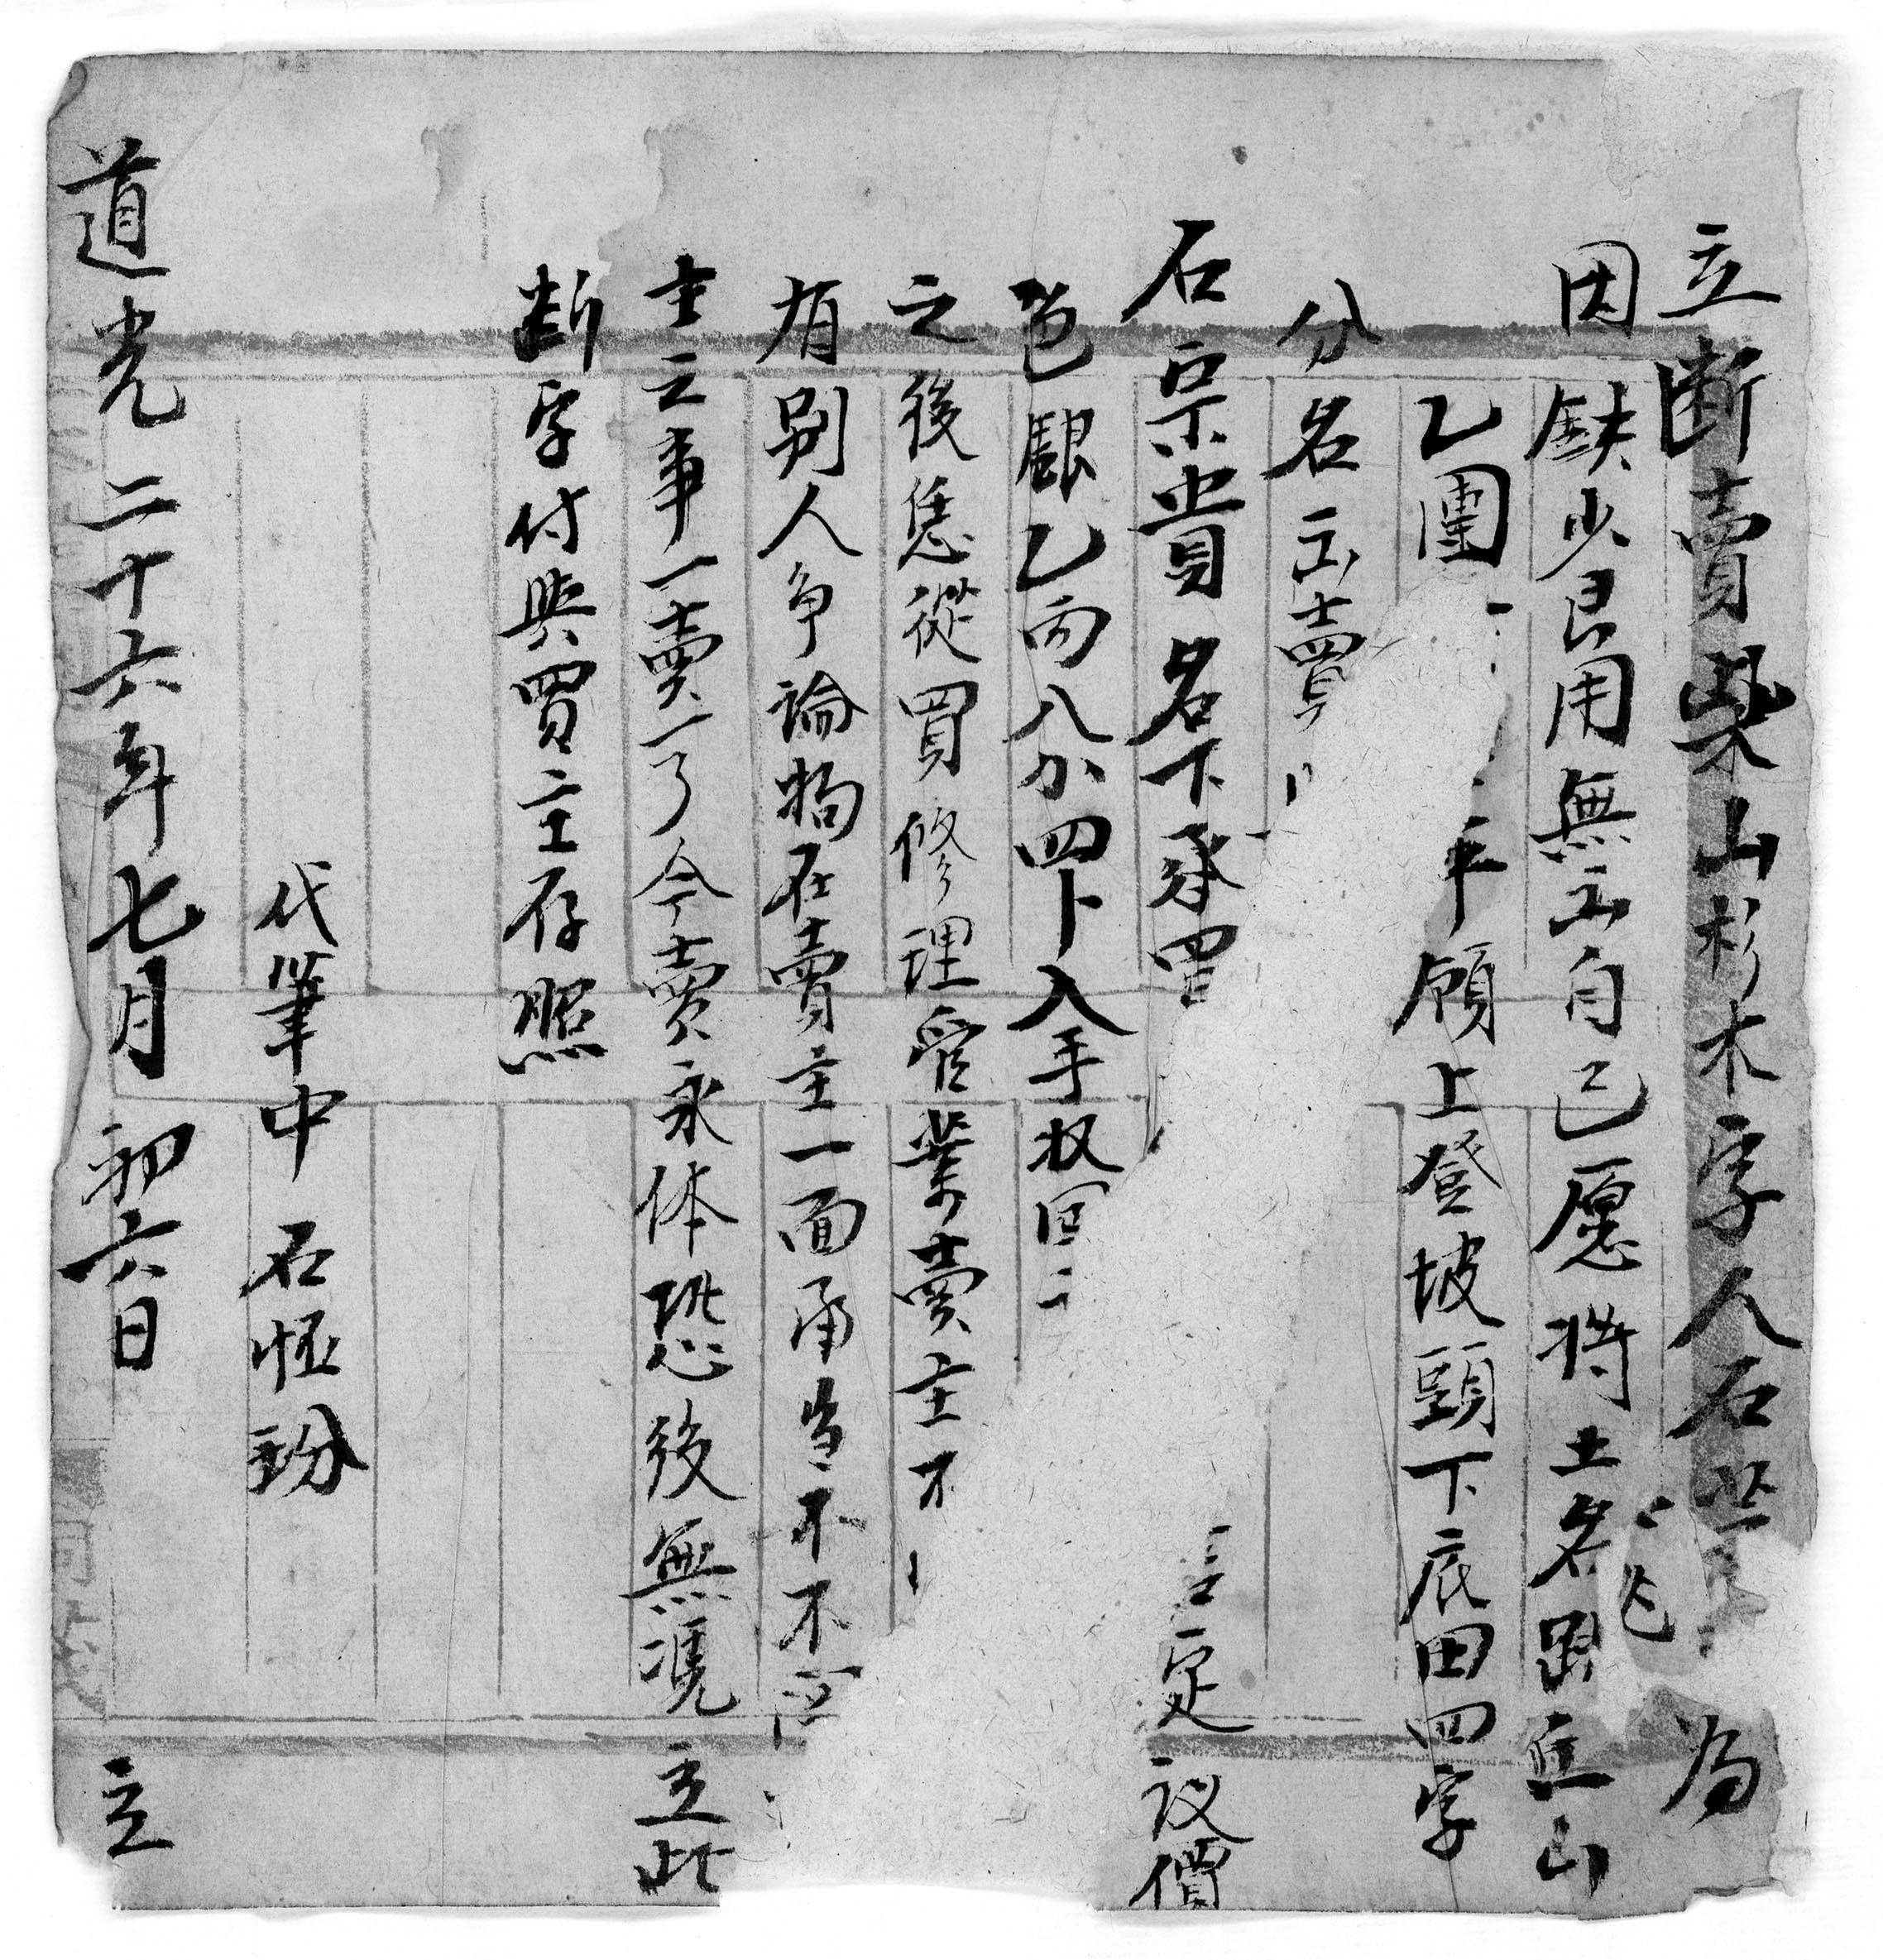 立断賣柴山杉木字人石 為
因缺少艮用無出自己愿将土名 山
乙團 平領上登坡頭下底田四字
分名出賣
石宗貴名下承買 言定议價
色銀乙両八分四卜入手收回
之後恁從買修理管業賣主不
有别人争論 在賣主一面甬当不
主之事一賣一了今賣永休恐後無凴立此
断字付與買主存照
代筆中 石恒玢
道光二十六年七月初六日 立